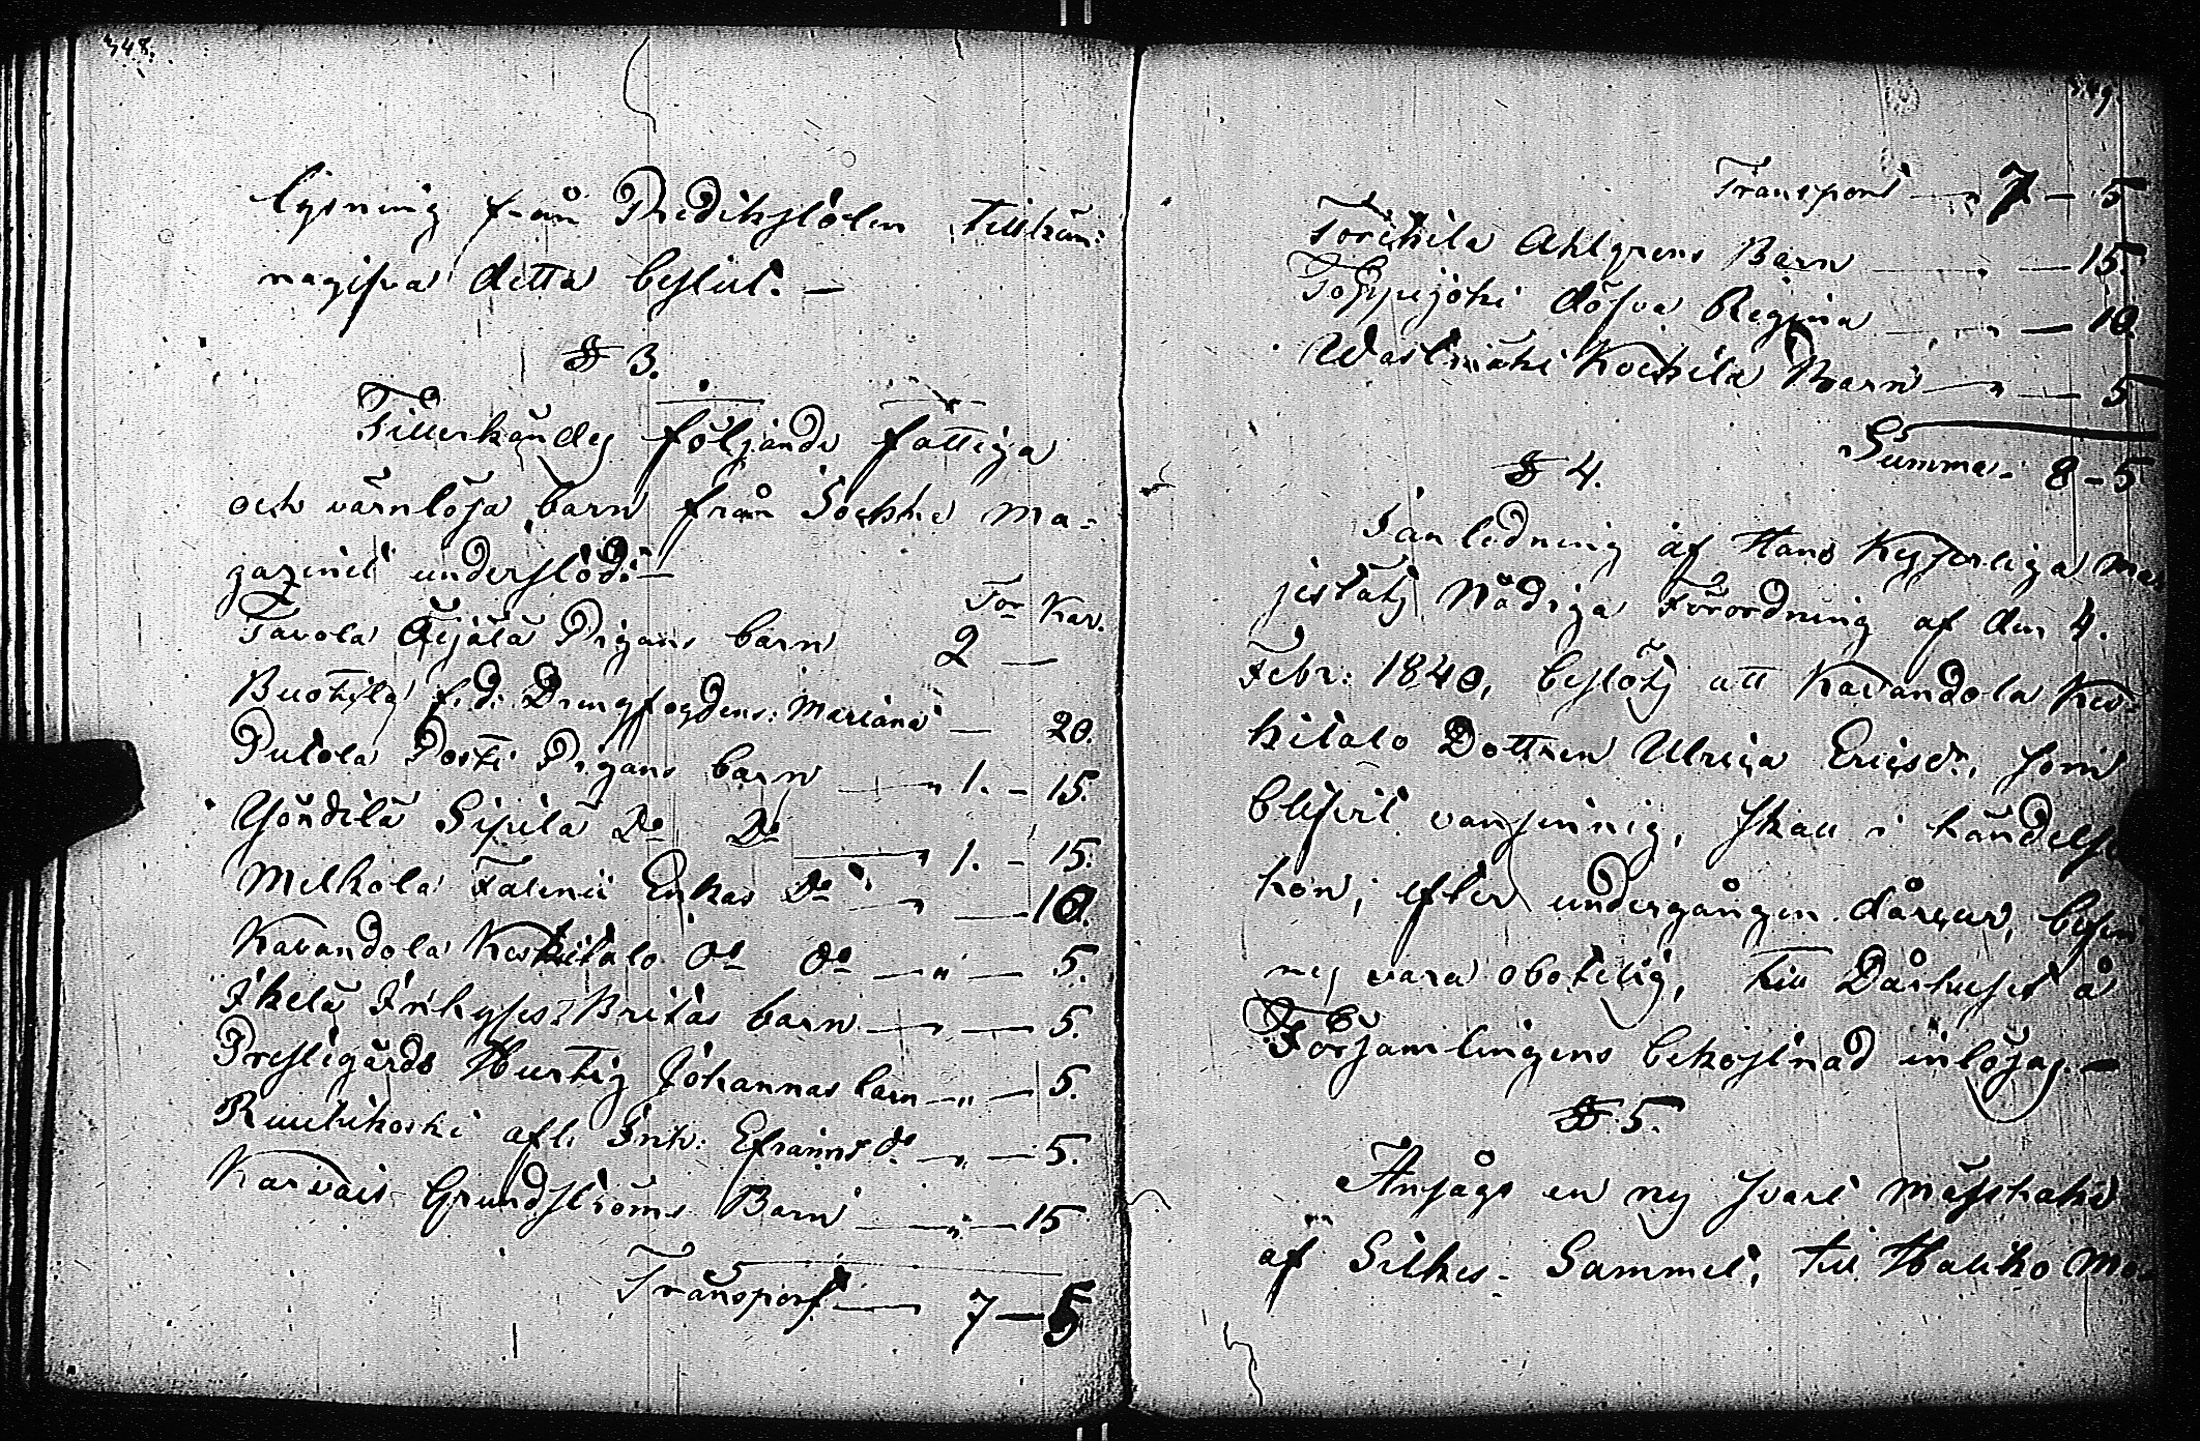 348.
lysning från Predikstolen tillkän-
nagifva detta beslut. —
§ 3.
Tillerkändes följande fattiga
och värnlösa barn från Sockne ma-
gazinet understöd:—
Tor Kar.
Tavola Äijälä Pigans barn 2 —
Buotila f. d. Drengfogdens: Mariana — 20.
Putola Posti Pigans barn — 1. - 15.
Yöndilä Sipilä Do Do — 1. - 15.
Melkola Enkas Do — " — 10.
Kavandola Keskitalo do do — " — 5.
Ikelä Inhyses Britas barn — " — 5.
Prestgårds Hurtig Johannas barn — " — 5.
Ruuhikoski afl. Inh: Efraims do — " — 5.
Karvais Grundströms Barn — " — 15
Transport — 7 — 5
349.
Transport — " 7 — 5
Torikila Ahlgrens Barn — " — 15.
Toppijoki döfva Regina — " — 10.
Wastmäki Kockila Barn — " — 5
Summa - 8 - 5
§ 4.
I anledning af Hans Kejserliga Ma-
jestäts Nådiga Förordning af den 4.
Febr: 1840, beslöts att Kavandola Kes-
kitalo Dottren Ulrica Ericsdr, som
blifvit vansinnig, skall i händelse
hon, efter undergången dårcur, befin-
nes vara obotelig, till Dårhuset å
Församlingens bekostnad inlösas. —
§ 5.
Ansågs en ny svart mässhake
af Silkes-Sammet, till Haliko Mo-